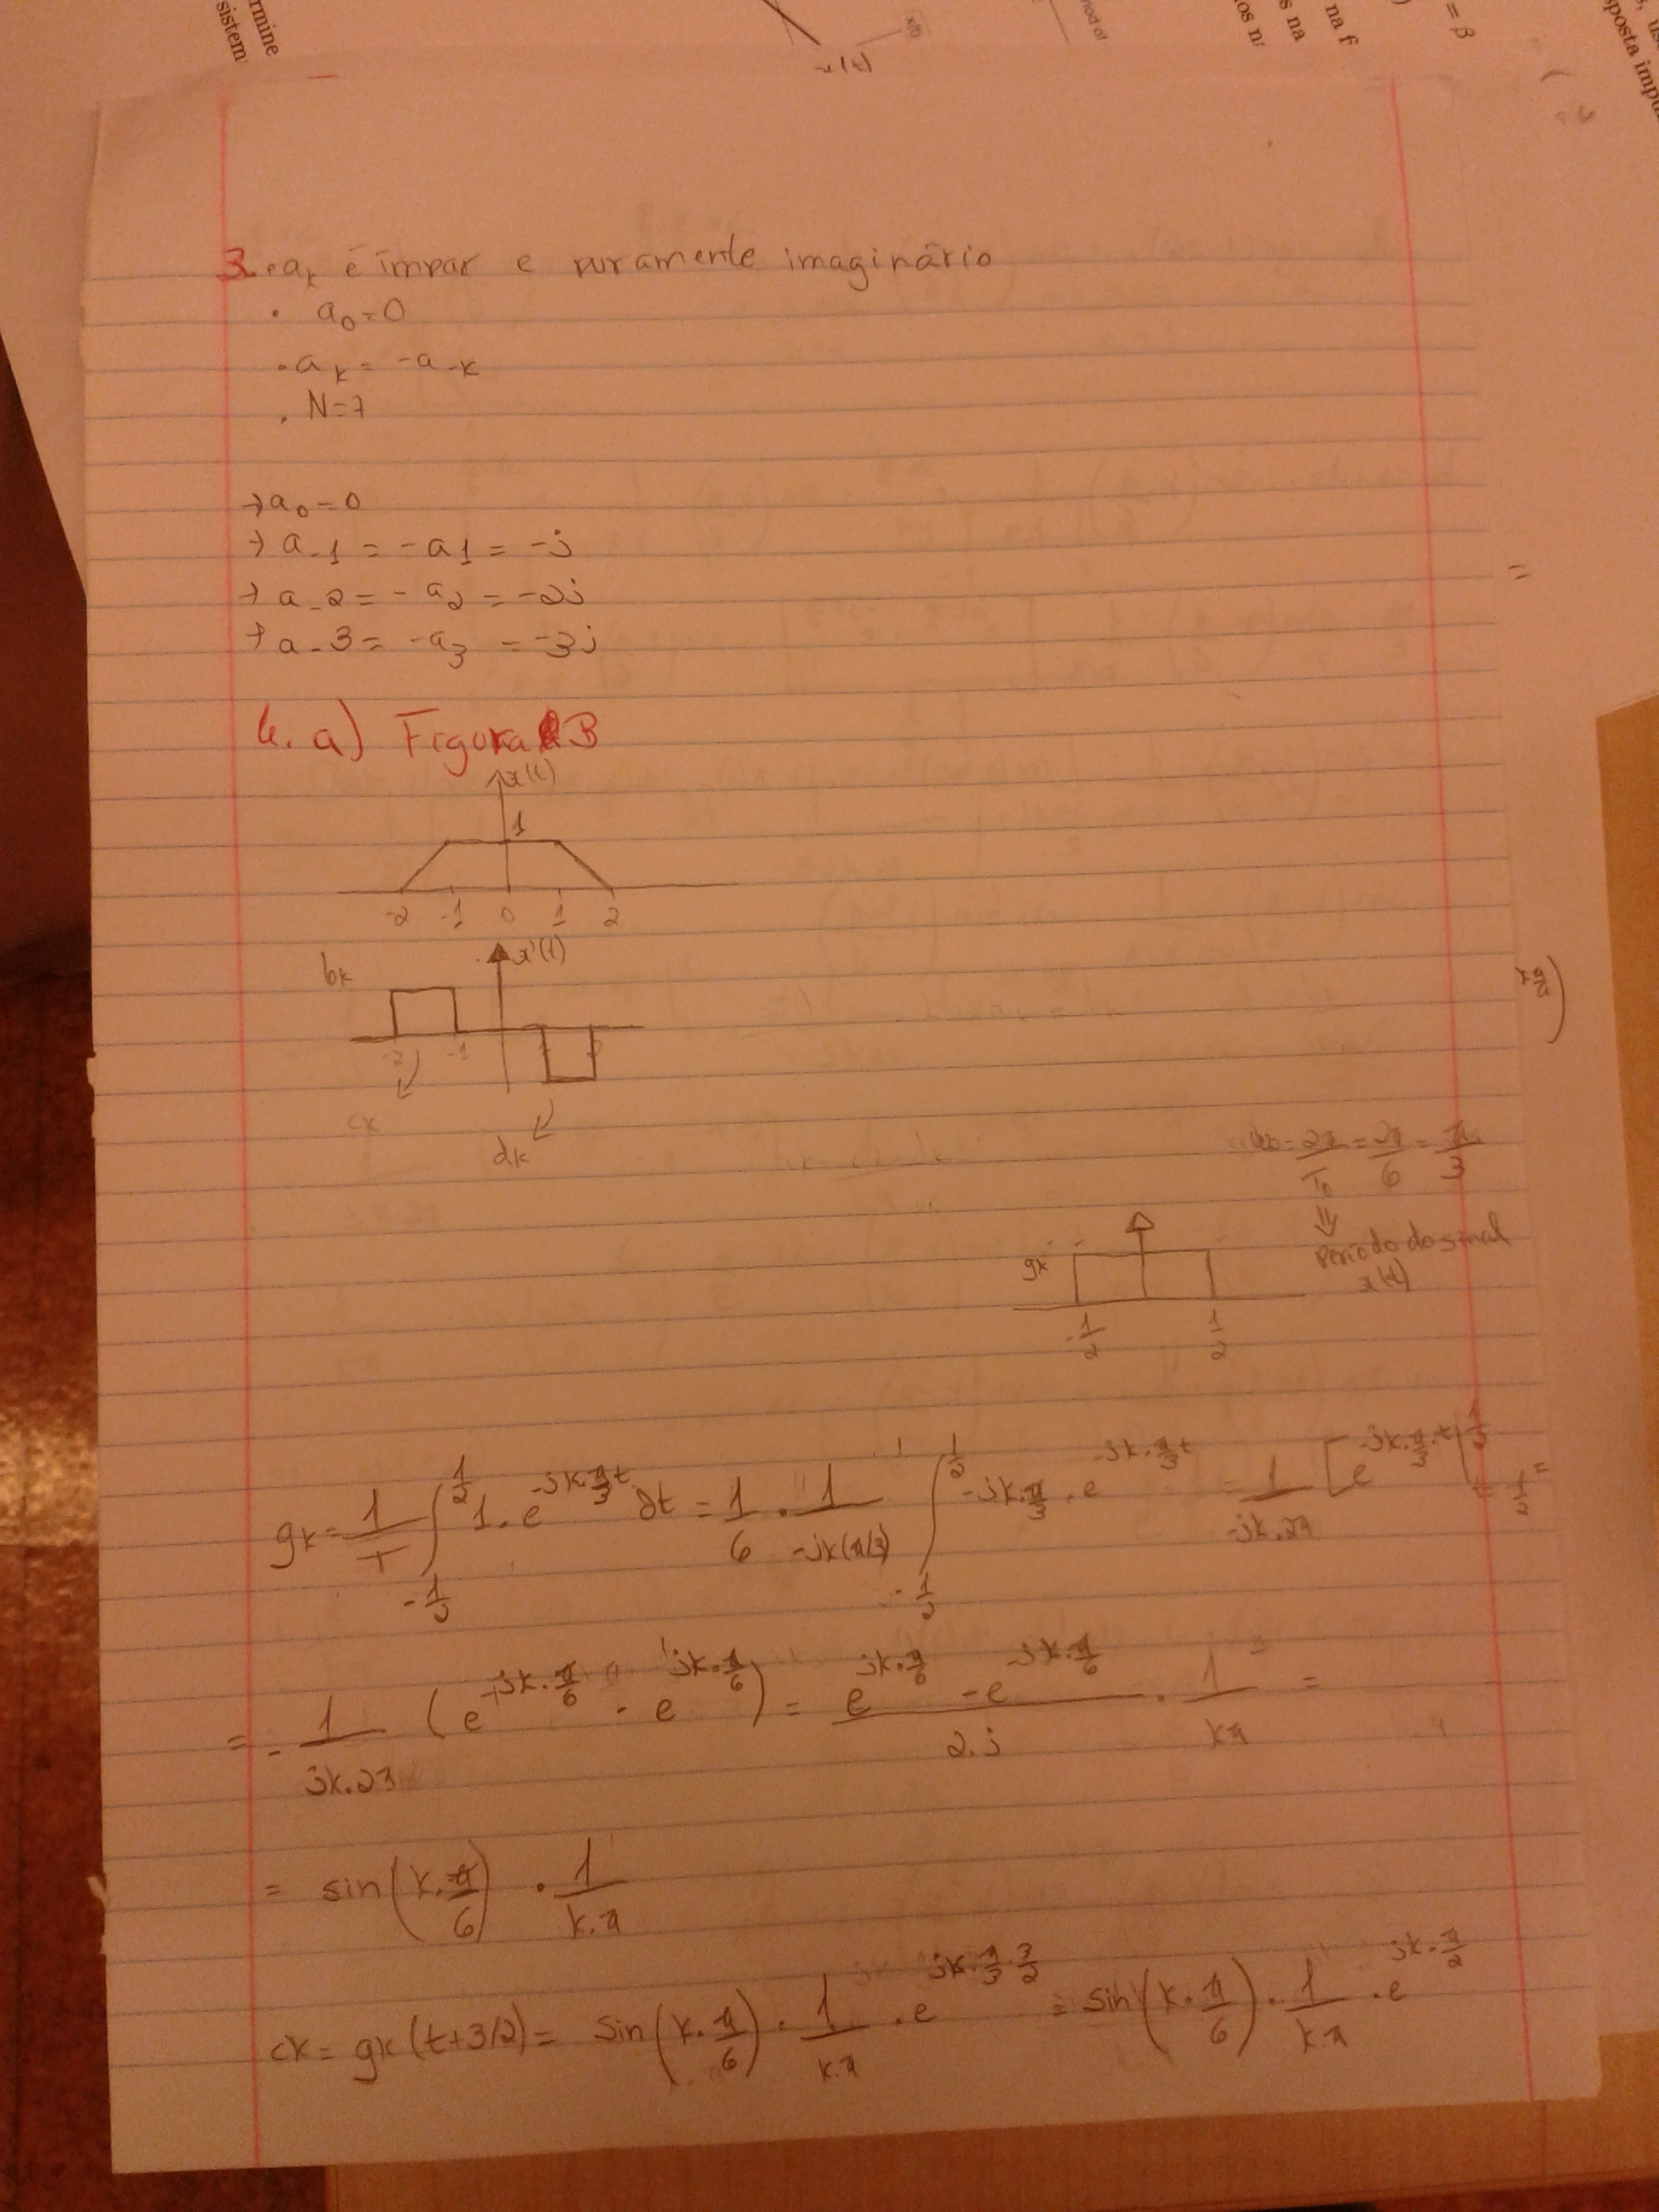 rmine
sistem
x(t)
os n
s na
na f
= β
posta impu
3. • ak é ímpar e puramente imaginário
• a0 = 0
• ak = -a-k
• N=7
→ a0 = 0
→ a-1 = -a1 = -j
→ a-2 = -a2 = -2j
→ a-3 = -a3 = -3j
4. a) Figura B
x(t)
1
-2 -1 0 1 2
x'(t)
bk
-2 -1
ck
dk
ω0 = 2π/T0 = 2π/6 = π/3
⇓
Período do sinal
x(t)
gk
-1/2 1/2
gk = 1/T ∫_{-1/2}^{1/2} 1 . e^{-jk.π/3 t} dt = 1/6 . 1/(-jk(π/3)) ∫_{-1/2}^{1/2} -jk.π/3 . e^{-jk.π/3 t} = 1/(-jk.2π) [e^{-jk.π/3.t}|_{t=-1/2}^{1/2} =
= - 1/(jk.2π) (e^{-jk.π/6} - e^{jk.π/6}) = (e^{jk.π/6} - e^{-jk.π/6})/(2.j) . 1/(kπ) =
= sin(k.π/6) . 1/(k.π)
ck = gk(t+3/2) = sin(k.π/6) . 1/(k.π) . e^{jk.π/3.3/2} = sin(k.π/6) . 1/(kπ) . e^{jk.π/2}